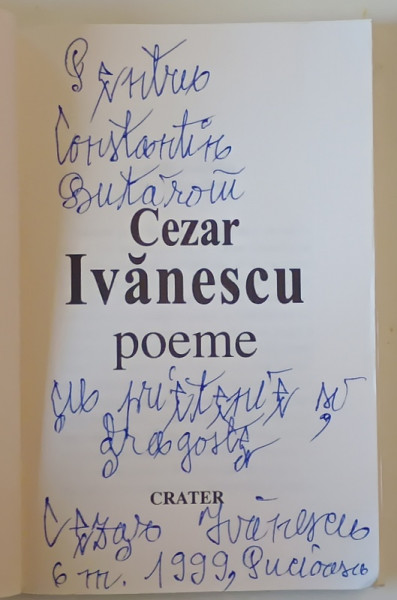 Pentru
Constantin
Cezar
Ivănescu
poeme
cu prietenie și
dragoste
CRATER
Cezar Ivănescu
6 m. 1999, Pucioasa